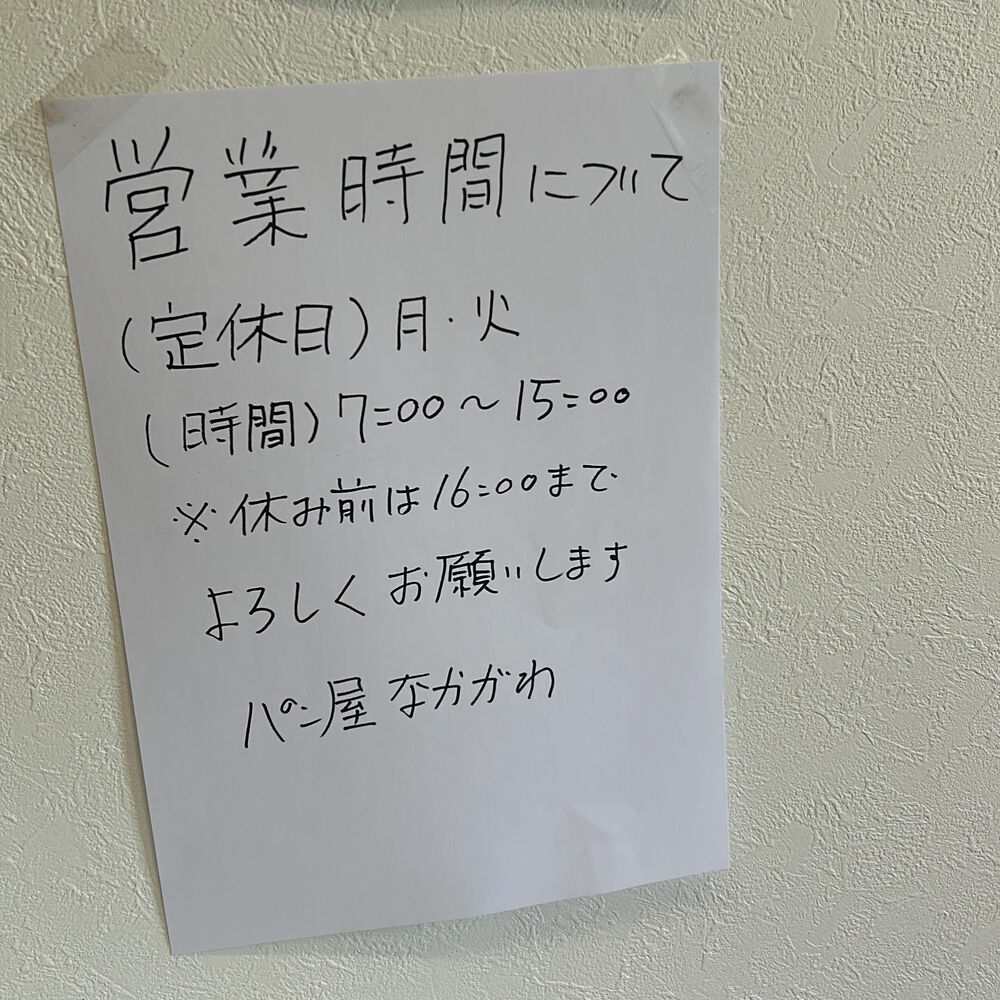 営業時間について
(定休日)月・火
(時間)7:00～15:00
※休み前は16:00まで
よろしくお願いします
パン屋なかがわ